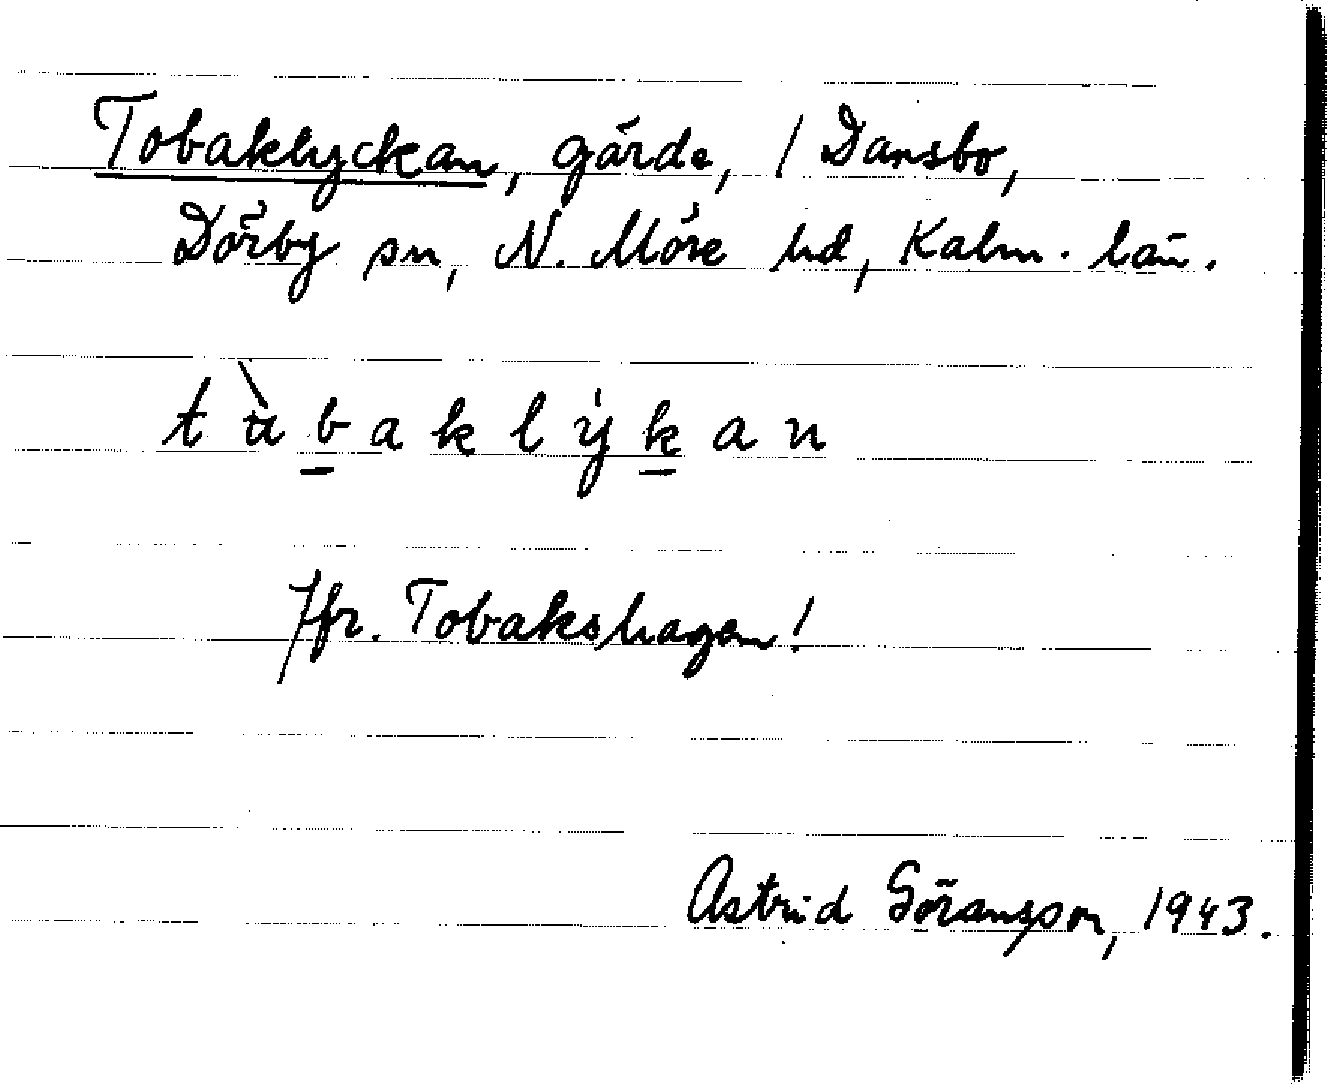 Tobaklyckan, gärde, / Dansbo,
Dörby sn, N. Möre hd, Kalm. län.
tùbaklýkan
Jfr. Tobakshagen!
Astrid Göransson, 1943.